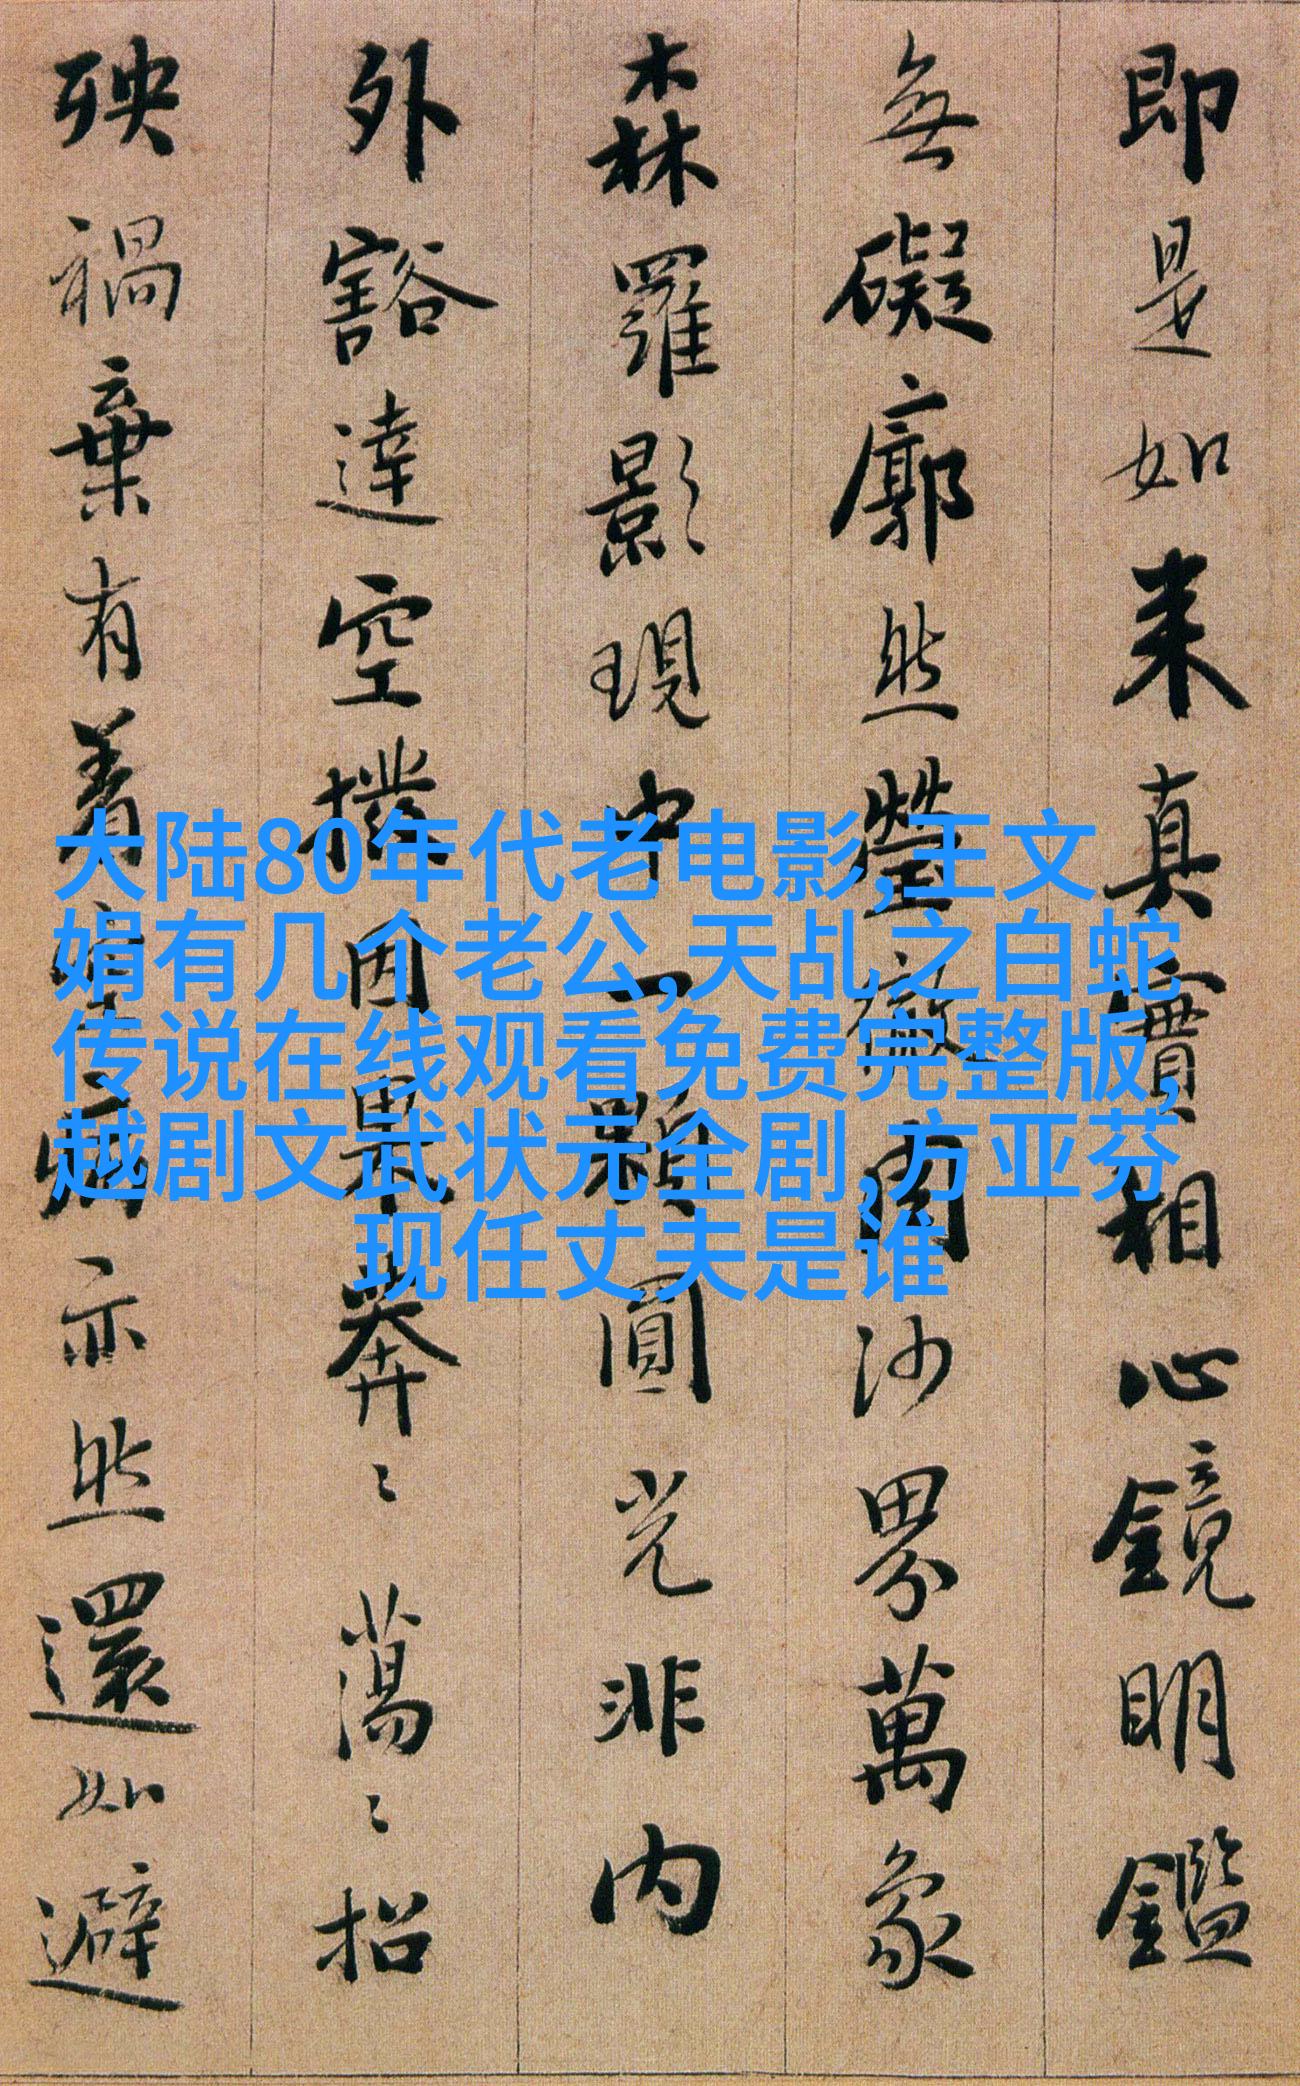 即是如来真實相心鏡明鑑
無礙廓然瑩徹周沙界萬象
森羅影現中一顆圓光非内
外豁達空撥因果莽〻蕩〻招
殃禍棄有着空病亦然還如避
大陆80年代老电影,王文
娟有几个老公,天乩之白蛇
传说在线观看免费完整版,
越剧文武状元全剧,方亚芬
现任丈夫是谁